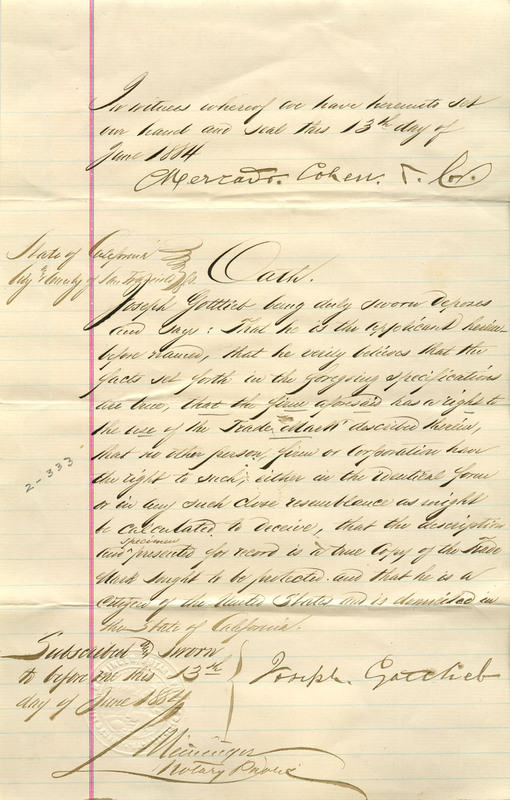 In witness whereof we have hereunto set
our hand and seal this 13th day of
June 1884
Mercado. Cohen. & Co.
State of California
City & County of San Francisco } ss
Oath.
Joseph Gottlieb being duly sworn deposes
and says: That he is the applicant herein
before named, that he verily believes that the
facts set forth in the foregoing specifications
are true, that the firm aforesaid has a right to
the use of the Trade Mark described therein,
that no other person, firm or corporation have
the right to such, either in the identical form
or in any such close resemblance as might
be calculated to deceive, that the description
specimen
and presented for record is a true copy of the Trade
Mark sought to be protected. and that he is a
citizen of the United States and is domiciled in
the State of California.
2-333
Subscribed & Sworn
to before me this 13th
day of June 1884
Joseph. Gottlieb
Meininger
Notary Public